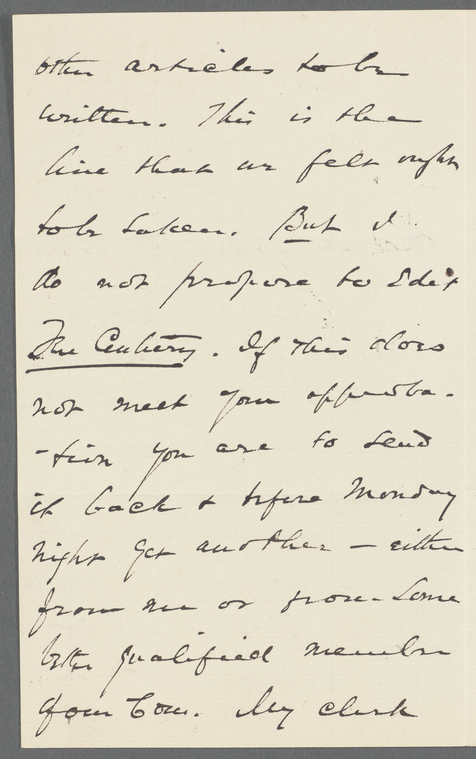 other articles to be
written. This is the
line that we felt ought
to be taken. But I
do not propose to Edit
The Century. If this does
not meet your approba-
-tion you are to send
it back & before Monday
night get another - either
from me or from some
better qualified member
of our Com. My clerk